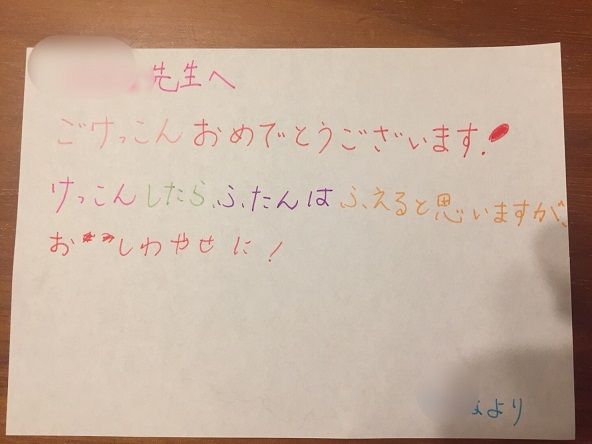 先生へ
ごけっこんおめでとうございます!
けっこんしたら、ふたんはふえると思いますが、
おしわやせに!
より